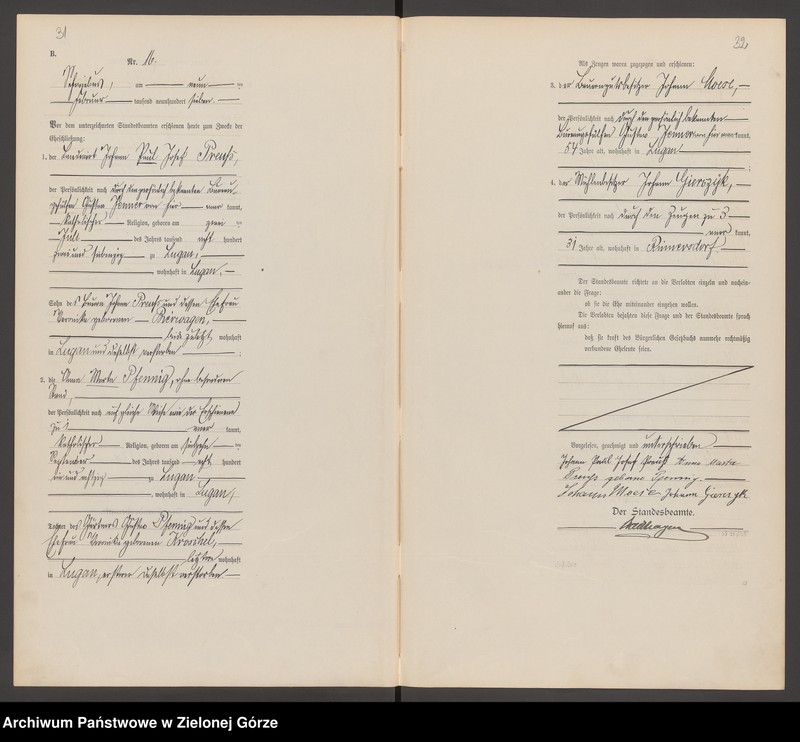 31
B.
Nr. 16.
am neunten
Februar tausend neunhundert sieben.
Vor dem unterzeichneten Standesbeamten erschienen heute zum Zwecke der
Eheschließung:
1. der Landwirt Johann Paul Josef Preuß,
der Persönlichkeit nach durch den persönlich bekannten
kannt,
katholischer Religion, geboren am zweiten
Juli des Jahres tausend acht hundert
zweiund siebenzig zu Lugau,
wohnhaft in Lugau.
Sohn des Bauern Johann Preuß und dessen Ehefrau
Veronika geborenen Bierwagen,
beide zuletzt wohnhaft
in Lugau und daselbst verstorben
2. die Anna Martha Pfennig, ohne besonderen
Stand,
der Persönlichkeit nach auf gleiche Weise wie der Erschienene
zu 1 kannt,
katholischer Religion, geboren am siebzehnten
September des Jahres tausend acht hundert
und achtzig zu Lugau
wohnhaft in Lugau,
Tochter des Gärtners Pfennig und dessen
Ehefrau Veronika geborenen
letztere wohnhaft
in Lugau, ersterer daselbst verstorben
32
Als Zeugen waren zugezogen und erschienen:
3. der Bauerngutsbesitzer Johann Moese,
der Persönlichkeit nach durch den persönlich bekannten
kannt,
57 Jahre alt, wohnhaft in Lugau
4. der Mühlenbesitzer Johann Gierszyk,
der Persönlichkeit nach durch den Zeugen zu 3
kannt,
31 Jahre alt, wohnhaft in Rinnersdorf
Der Standesbeamte richtete an die Verlobten einzeln und nachein-
ander die Frage:
ob sie die Ehe miteinander eingehen wollen.
Die Verlobten bejahten diese Frage und der Standesbeamte sprach
hierauf aus:
daß sie kraft des Bürgerlichen Gesetzbuchs nunmehr rechtmäßig
verbundene Eheleute seien.
Vorgelesen, genehmigt und unterschrieben
Johann Paul Josef Preuß Anna Martha
Preuß geborne Pfennig
Johann Moese Johann Gierszyk
Der Standesbeamte.
Archiwum Państwowe w Zielonej Górze